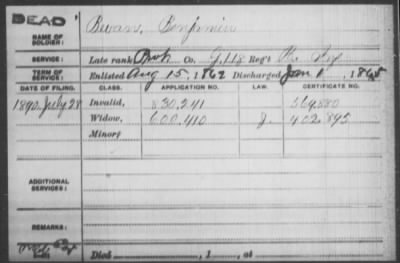 DEAD
NAME OF SOLDIER: Bevans, Benjamin
SERVICE: Late rank Co. G, 118 Reg't Inf
TERM OF SERVICE: Enlisted Aug 15, 1862 Discharged Jan 1, 1865
DATE OF FILING. CLASS. APPLICATION NO. LAW. CERTIFICATE NO.
1890, July 28 Invalid, 830.241 564.880
Widow, 600.410 402.895
Minor:
ADDITIONAL SERVICES:
REMARKS:
Died , 1 , at